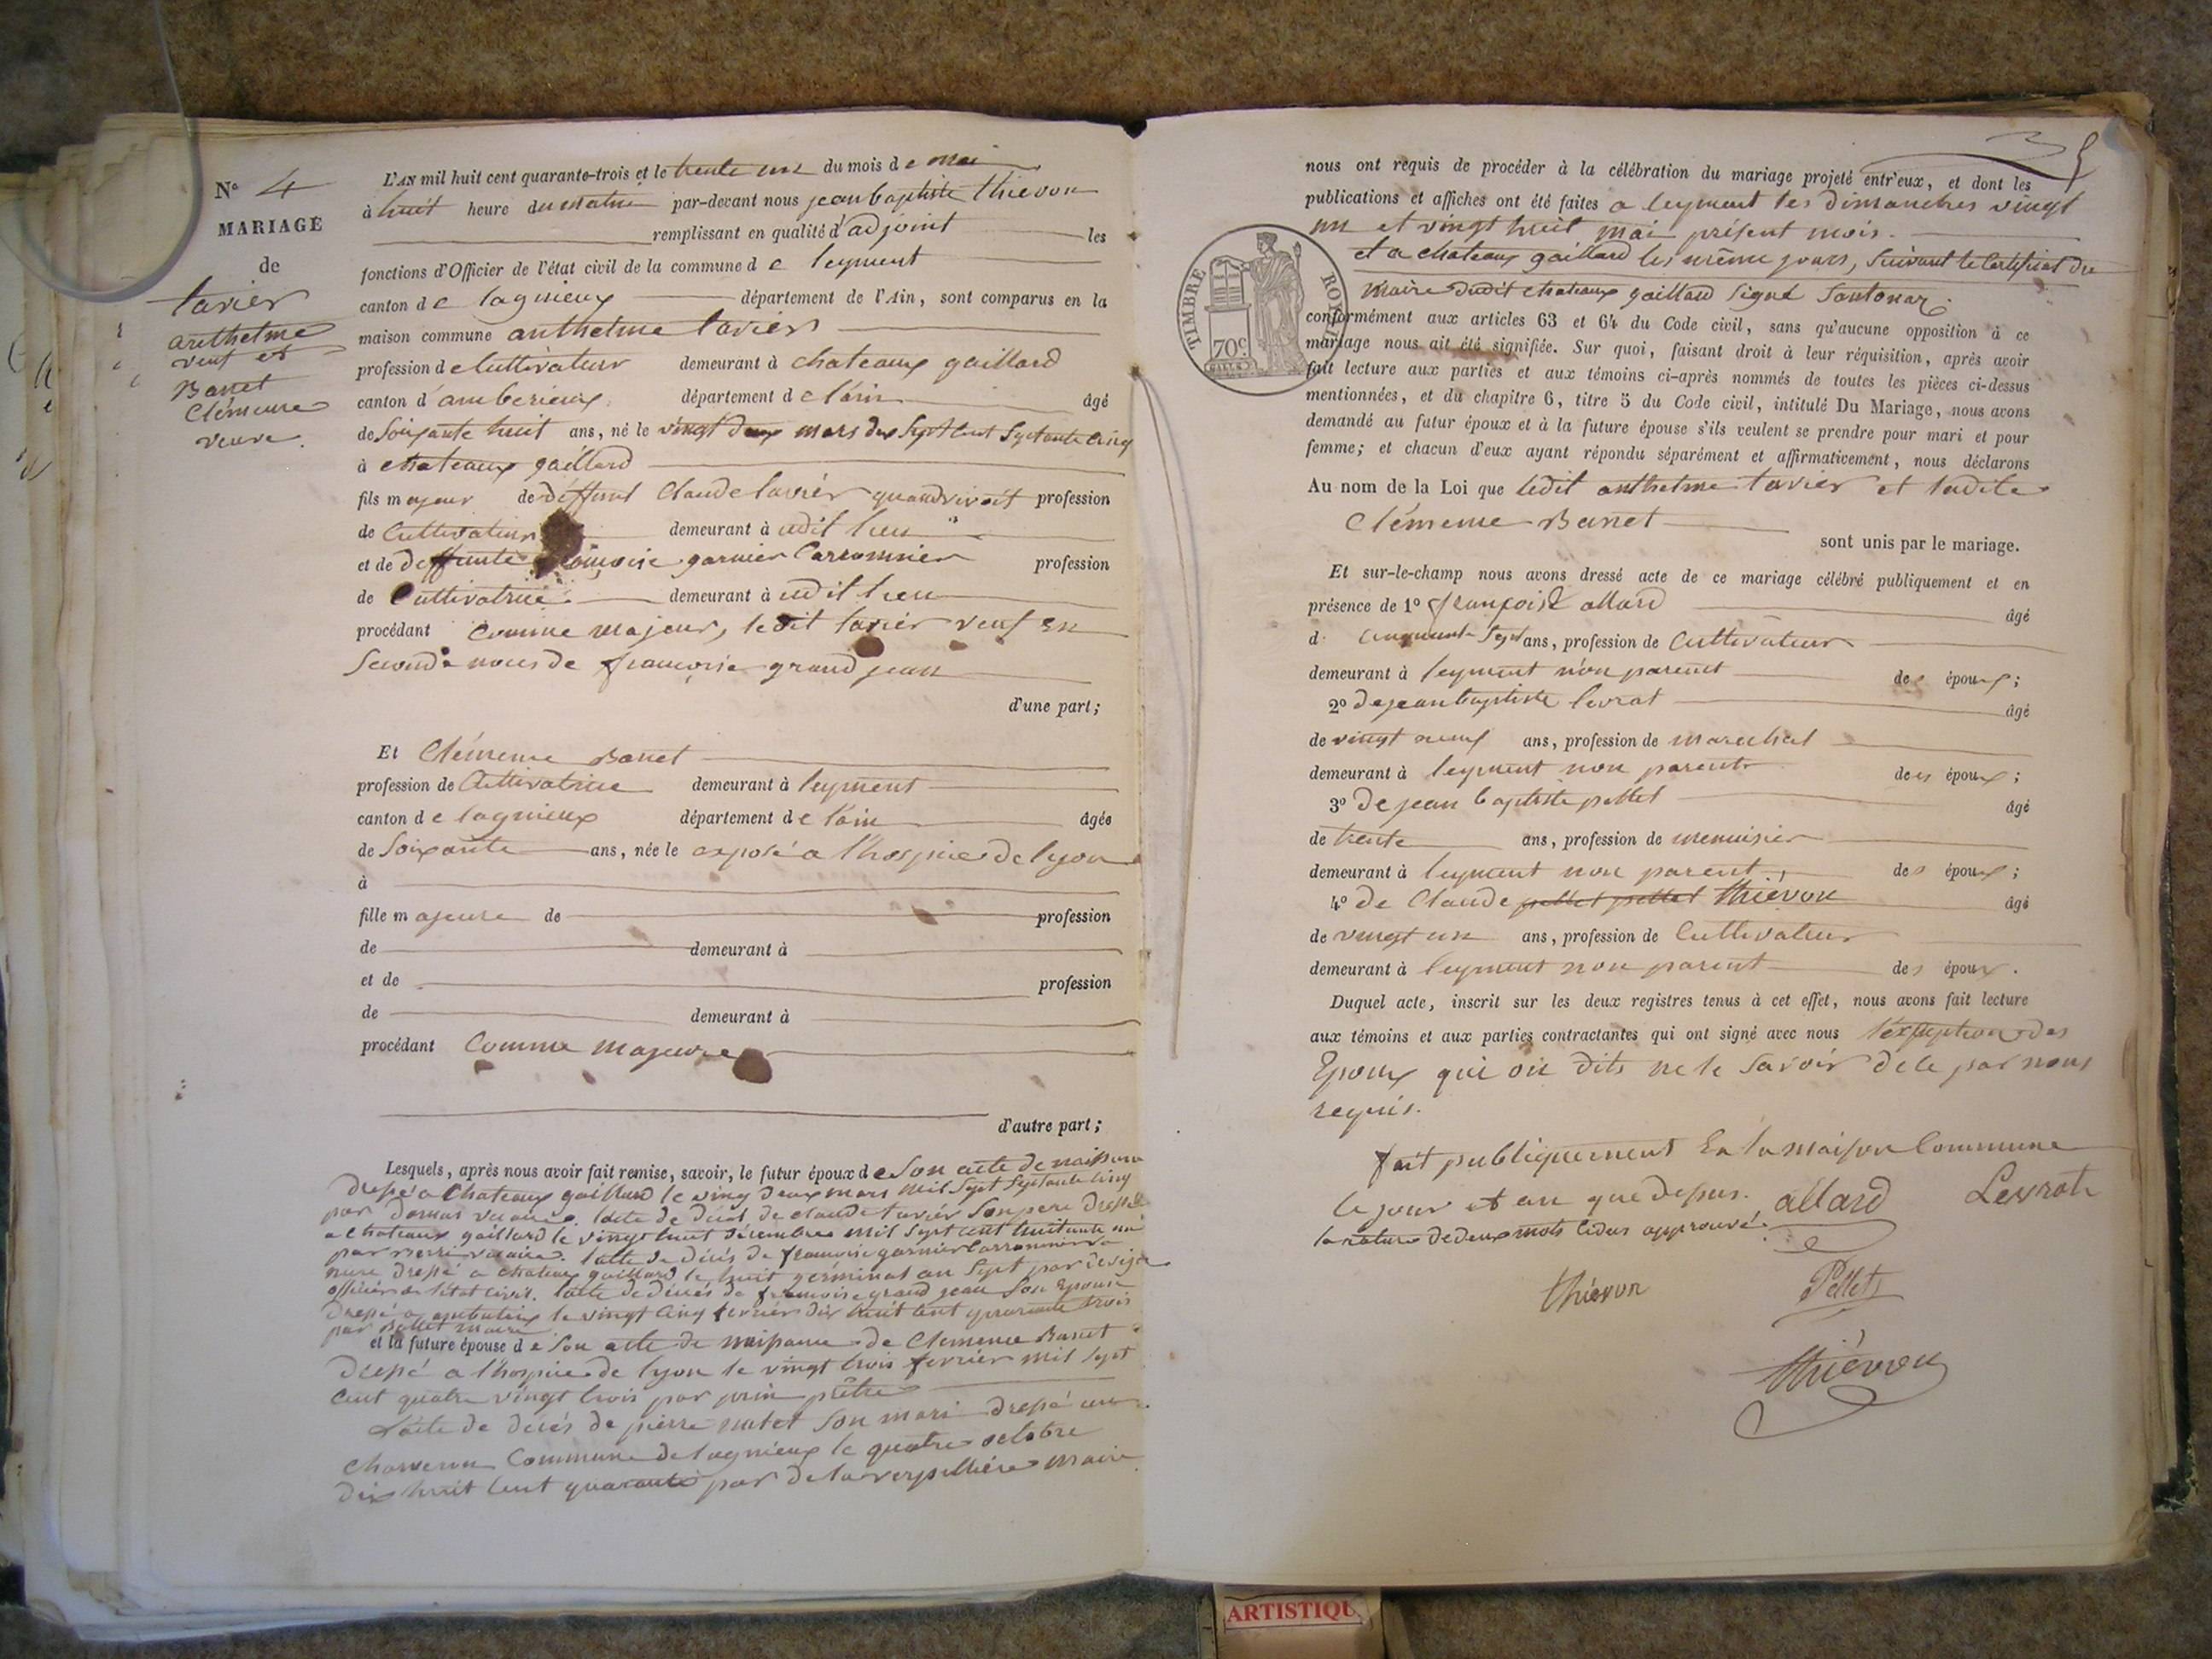 N° 4
MARIAGE
de
tavier
anthelme
veuf et
Banet
Clémence
veuve.
L'AN mil huit cent quarante-trois et le trente un du mois de mai
à huit heure du matin par-devant nous jean baptiste thievon
remplissant en qualité d'adjoint les
fonctions d'Officier de l'état civil de la commune de leyment
canton de lagnieux département de l'Ain, sont comparus en la
maison commune anthelme tavier
profession de Cultivateur demeurant à chateaux gaillard
canton d'amberieux département de l'ain âgé
de Soixante huit ans, né le vingt deux mars dix Sept Cent Septante Cinq
à chateaux gaillard
fils majeur de deffunt Claude tavier quand vivoit profession
de Cultivateur demeurant à udit lieu
et de deffunte garnier Carronnier profession
de Cultivatrice demeurant à udit lieu
procédant Comme majeur, ledit tavier veuf En
Seconde noces de françoise grand jean
d'une part;
Et Clémence Banet
profession de Cultivatrice demeurant à leyment
canton de lagnieux département de l'ain âgée
de Soixante ans, née le exposé a l'hospice de lyon
à
fille majeure de profession
de demeurant à
et de profession
de demeurant à
procédant Comme majeure
d'autre part;
Lesquels, après nous avoir fait remise, savoir, le futur époux de Son acte de naissance
dressé a Chateaux gaillard le vingt deux mars mil Sept Septante Cinq
par vicaire. l'acte de décès de claude tavier Son pere dressé
a Chateaux gaillard le vingt huit décembre mil Sept cent huitante
par vicaire. l'acte de décès de françoise garnier Carronnier Sa
mere dressé a chateau gaillard le huit germinal an Sept par
officier de l'état civil. l'acte de décès de françoise grand jean Son Epouse
dressé a le vingt Cinq fevrier dix huit Cent quarante trois
par maire
et la future épouse de Son acte de naissance de Clemence Banet
dressé a l'hospice de lyon le vingt trois fevrier mil Sept
Cent quatre vingt trois par prêtre
l'acte de décès de pierre Son mari dressé au
Commune de lagnieux le quatre octobre
dix huit Cent quarante par de la verpillière maire
nous ont requis de procéder à la célébration du mariage projeté entr'eux, et dont les
publications et affiches ont été faites a leyment les dimanches vingt
un et vingt huit mai présent mois.
et a chateaux gaillard les même jours, Suivant le Certificat du
maire dudit chateaux gaillard Signé Santonax.
TIMBRE ROYAL
70 C.
conformément aux articles 63 et 64 du Code civil, sans qu'aucune opposition à ce
mariage nous ait été signifiée. Sur quoi, faisant droit à leur réquisition, après avoir
fait lecture aux parties et aux témoins ci-après nommés de toutes les pièces ci-dessus
mentionnées, et du chapitre 6, titre 5 du Code civil, intitulé Du Mariage, nous avons
demandé au futur époux et à la future épouse s'ils veulent se prendre pour mari et pour
femme; et chacun d'eux ayant répondu séparément et affirmativement, nous déclarons
Au nom de la Loi que ledit anthelme tavier et ladite
Clémence Banet
sont unis par le mariage.
Et sur-le-champ nous avons dressé acte de ce mariage célébré publiquement et en
présence de 1° françois allard âgé
d cinquante Sept ans, profession de Cultivateur
demeurant à leyment non parent des époux;
2° de jean baptiste levrat âgé
de vingt neuf ans, profession de marechal
demeurant à leyment non parent des époux;
3° de jean baptiste pellet âgé
de trente ans, profession de menuisier
demeurant à leyment non parent des époux;
4° de Claude pellet pellet thiévon âgé
de vingt un ans, profession de Cultivateur
demeurant à leyment non parent des époux.
Duquel acte, inscrit sur les deux registres tenus à cet effet, nous avons fait lecture
aux témoins et aux parties contractantes qui ont signé avec nous l'exseption des
Epoux qui on dits ne le Savoir de ce par nous
requis.
fait publiquement En la maison Commune
le jour et an que depus. allard Levrat
la rature de deux mots Cidus approuvé.
thiévon Pellet
thiévon
ARTISTIQU